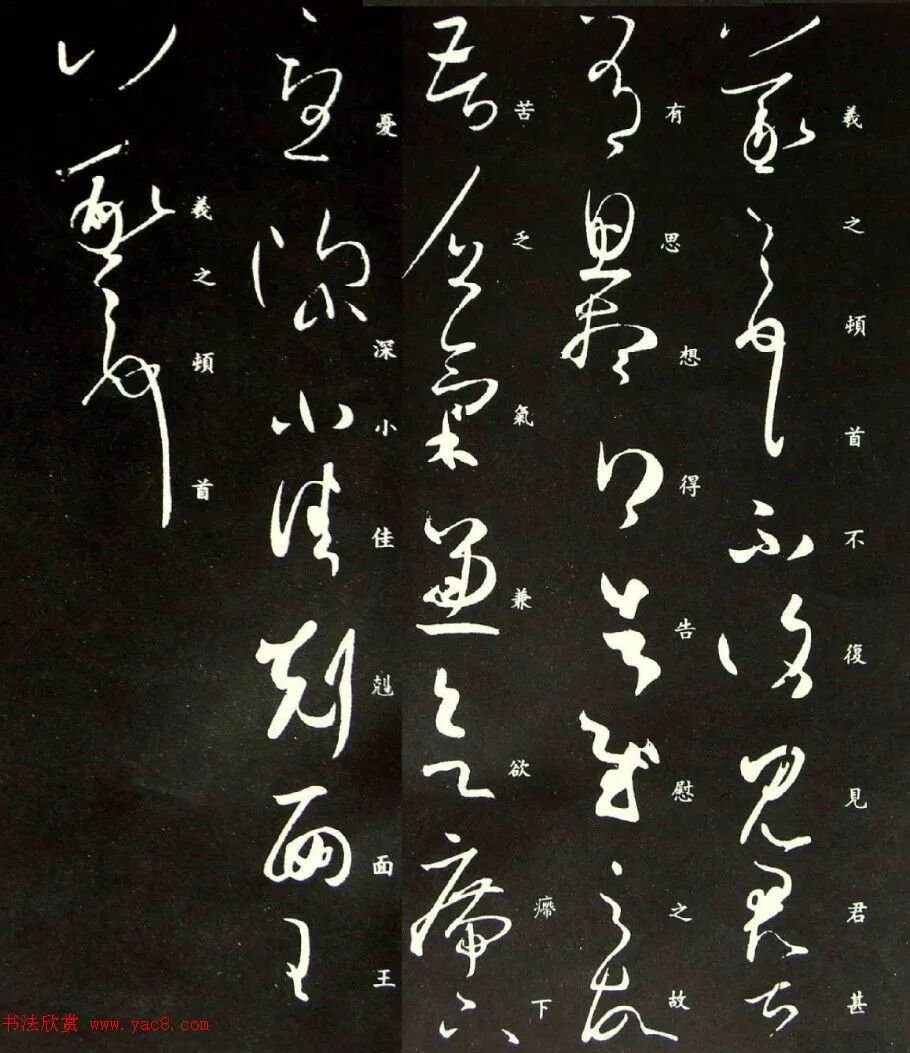 羲之頓首不復見君甚
有思想得告慰之故
苦乏氣兼欲㿃下
憂深小佳尅面王
羲之頓首
书法欣赏 www.yac8.com